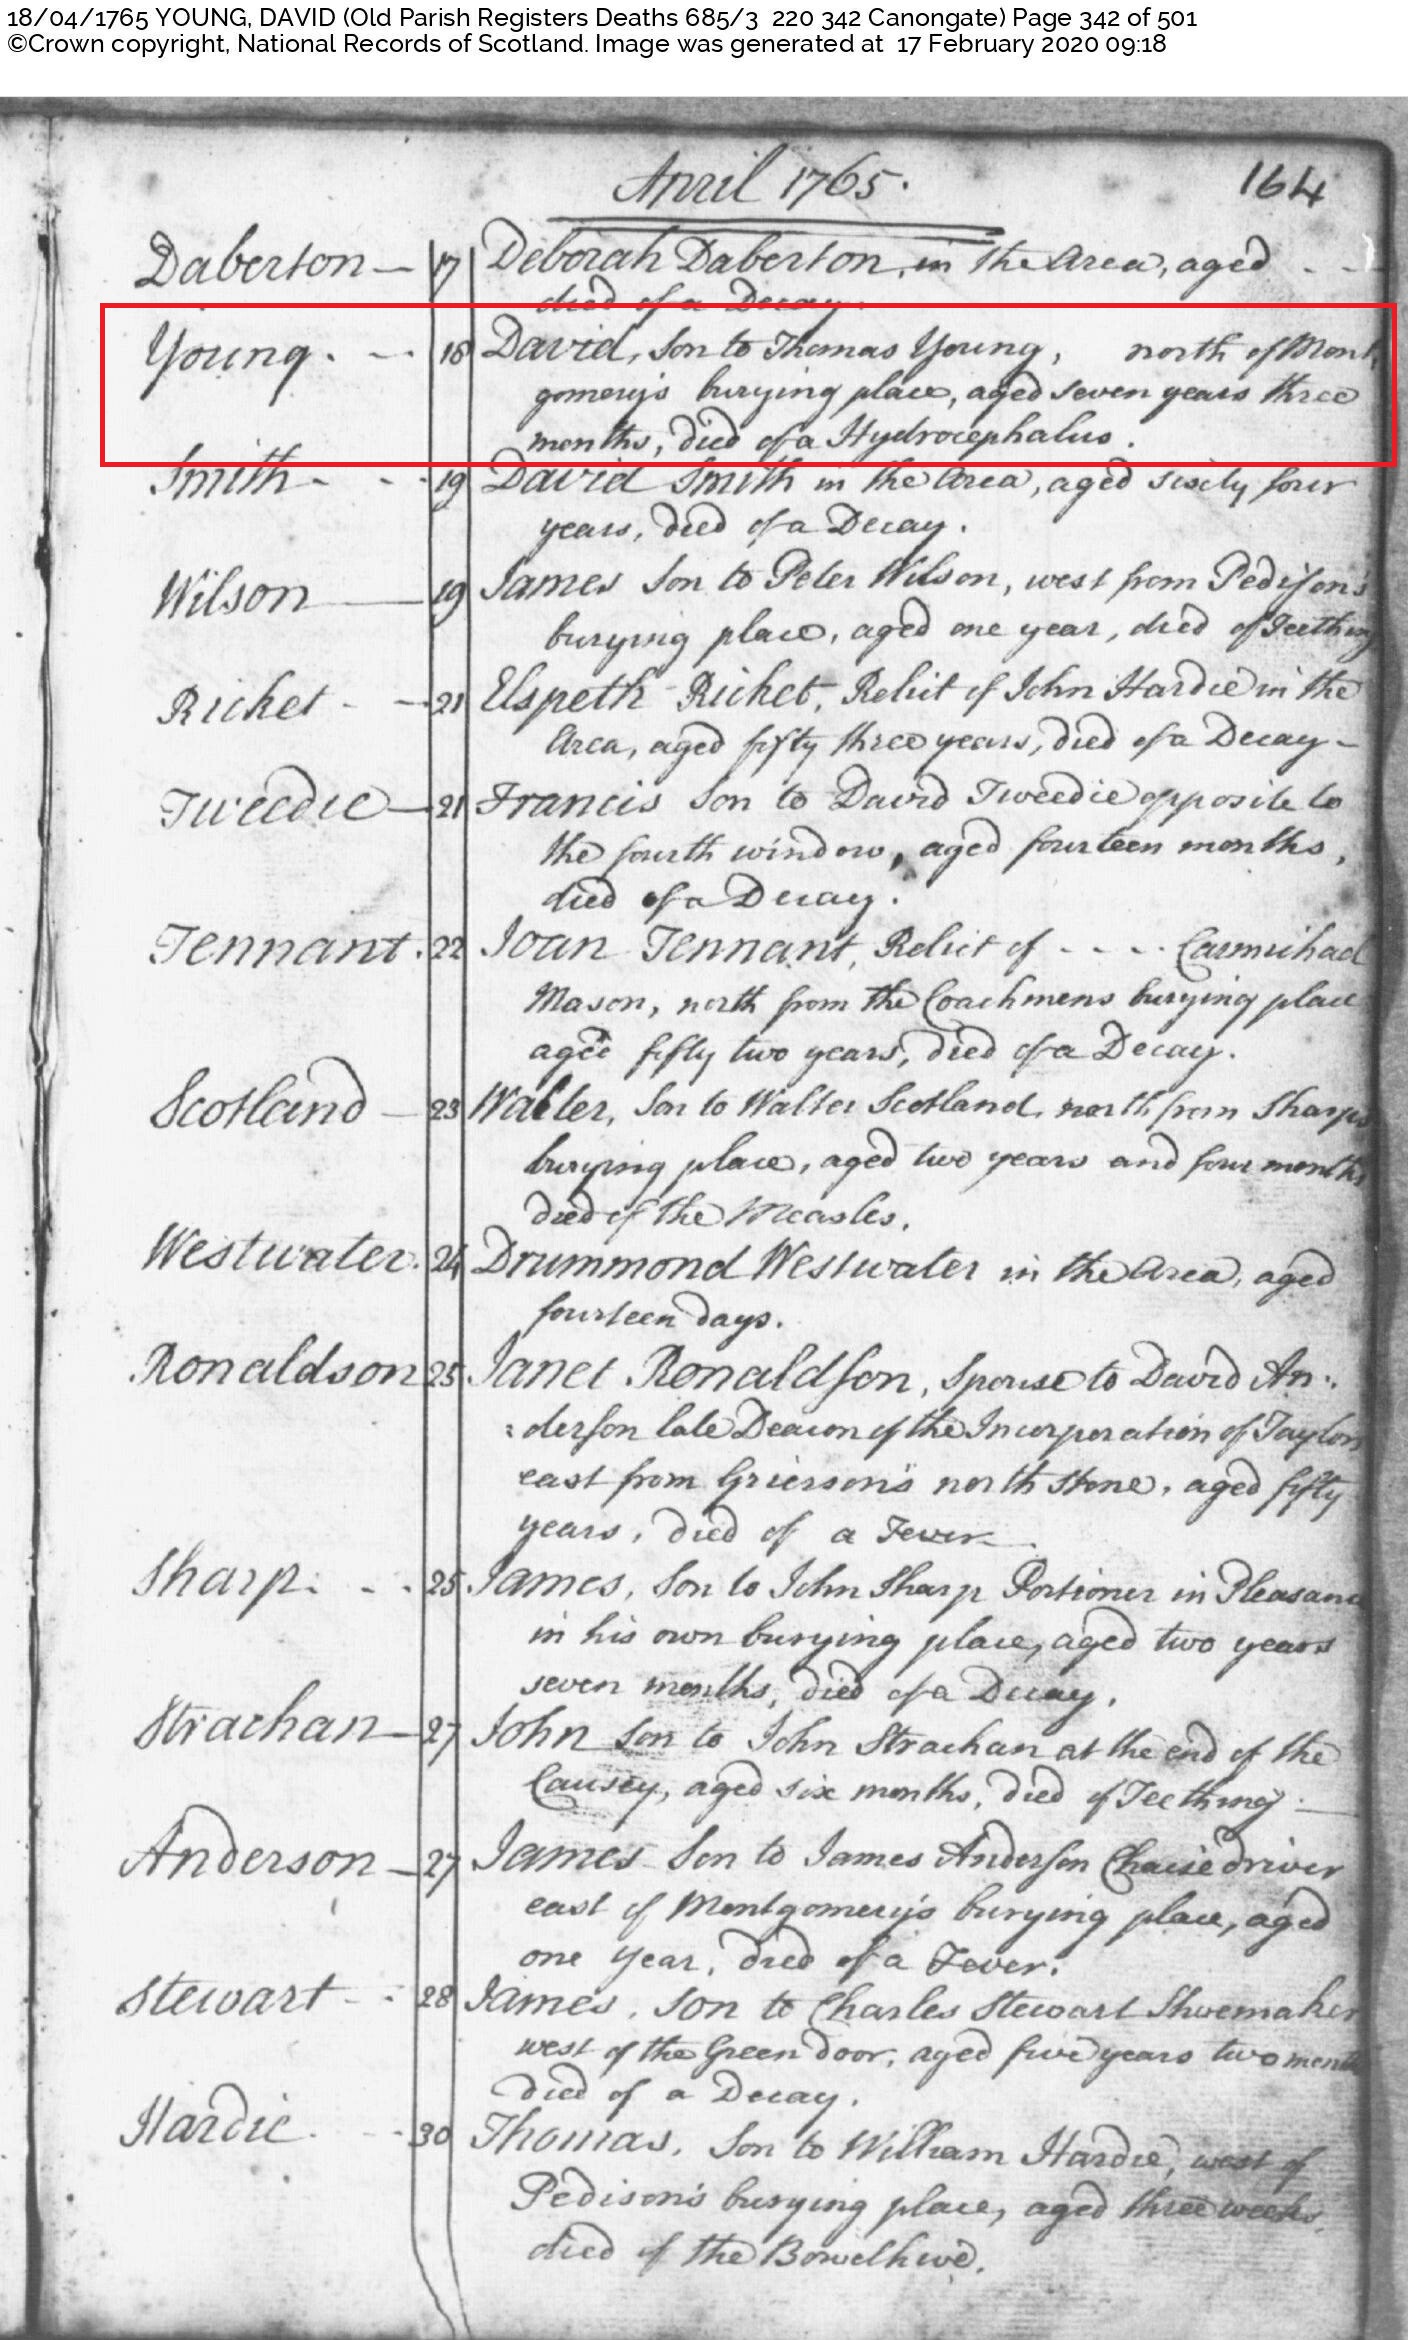 18/04/1765 YOUNG, DAVID (Old Parish Registers Deaths 685/3 220 342 Canongate) Page 342 of 501
©Crown copyright, National Records of Scotland. Image was generated at 17 February 2020 09:18
April 1765. 164
Daberton — 17 Deborah Daberton, in the Area, aged - - -
died of a Decay.
Young. - - 18 David, Son to Thomas Young, north of Mont
gomery's burying place, aged seven years three
months, died of a Hydrocephalus.
Smith - - - 19 David Smith in the Area, aged sixty four
years, died of a Decay.
Wilson — 19 James Son to Peter Wilson, west from Pedison's
burying place, aged one year, died of Teething
Ricket - - 21 Elspeth Ricket, Relict of John Hardie in the
Area, aged fifty three years, died of a Decay -
Tweedie — 21 Francis Son to David Tweedie opposite to
the fourth window, aged fourteen months,
died of a Decay.
Tennant. 22 Joan Tennant, Relict of - - - - Carmichael
Mason, north from the Coachmens burying place
aged fifty two years, died of a Decay.
Scotland — 23 Walter, Son to Walter Scotland, north from Sharps
burying place, aged two years and four months
died of the Measles.
Westwater. 24 Drummond Westwater in the Area, aged
fourteen days.
Ronaldson 25 Janet Ronaldson, Spouse to David An-
:derson late Deacon of the Incorporation of Taylors
east from Grierson's north Stone, aged fifty
years, died of a Fever
Sharp. - - 25 James, Son to John Sharp Portioner in Pleasance
in his own burying place, aged two years
seven months, died of a Decay.
Strachan — 27 John Son to John Strachan at the end of the
Causey, aged six months, died of Teething. —
Anderson — 27 James Son to James Anderson Chaise driver
east of Montgomery's burying place, aged
one year, died of a Fever.
Stewart - - 28 James, Son to Charles Stewart Shoemaker
west of the Green door, aged five years two months
died of a Decay.
Hardie - - 30 Thomas, Son to William Hardie, west of
Pedison's burying place, aged three weeks,
died of the Bowelhive.